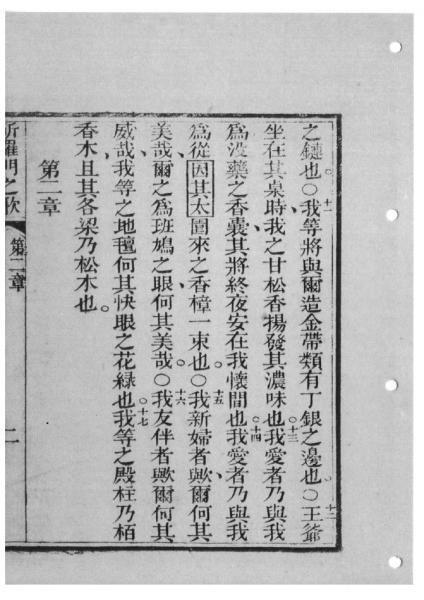 之鏈也○十一我等將與爾造金帶類有丁銀之邊也○十二王爺
坐在其桌時我之甘松香揚發其濃味也○十三我愛者乃與我
為沒藥之香囊其將終夜安在我懷間也○十四我愛者乃與我
為從因其太園來之香樟一束也○十五我新婦者歟爾何其
美哉爾之為班鳩之眼何其美哉○十六我友伴者歟爾何其
威哉我等之地氊何其快眼之花綠也○十七我等之殿柱乃栢
香木且其各梁乃松木也
第二章
所羅門之歌 第二章 二